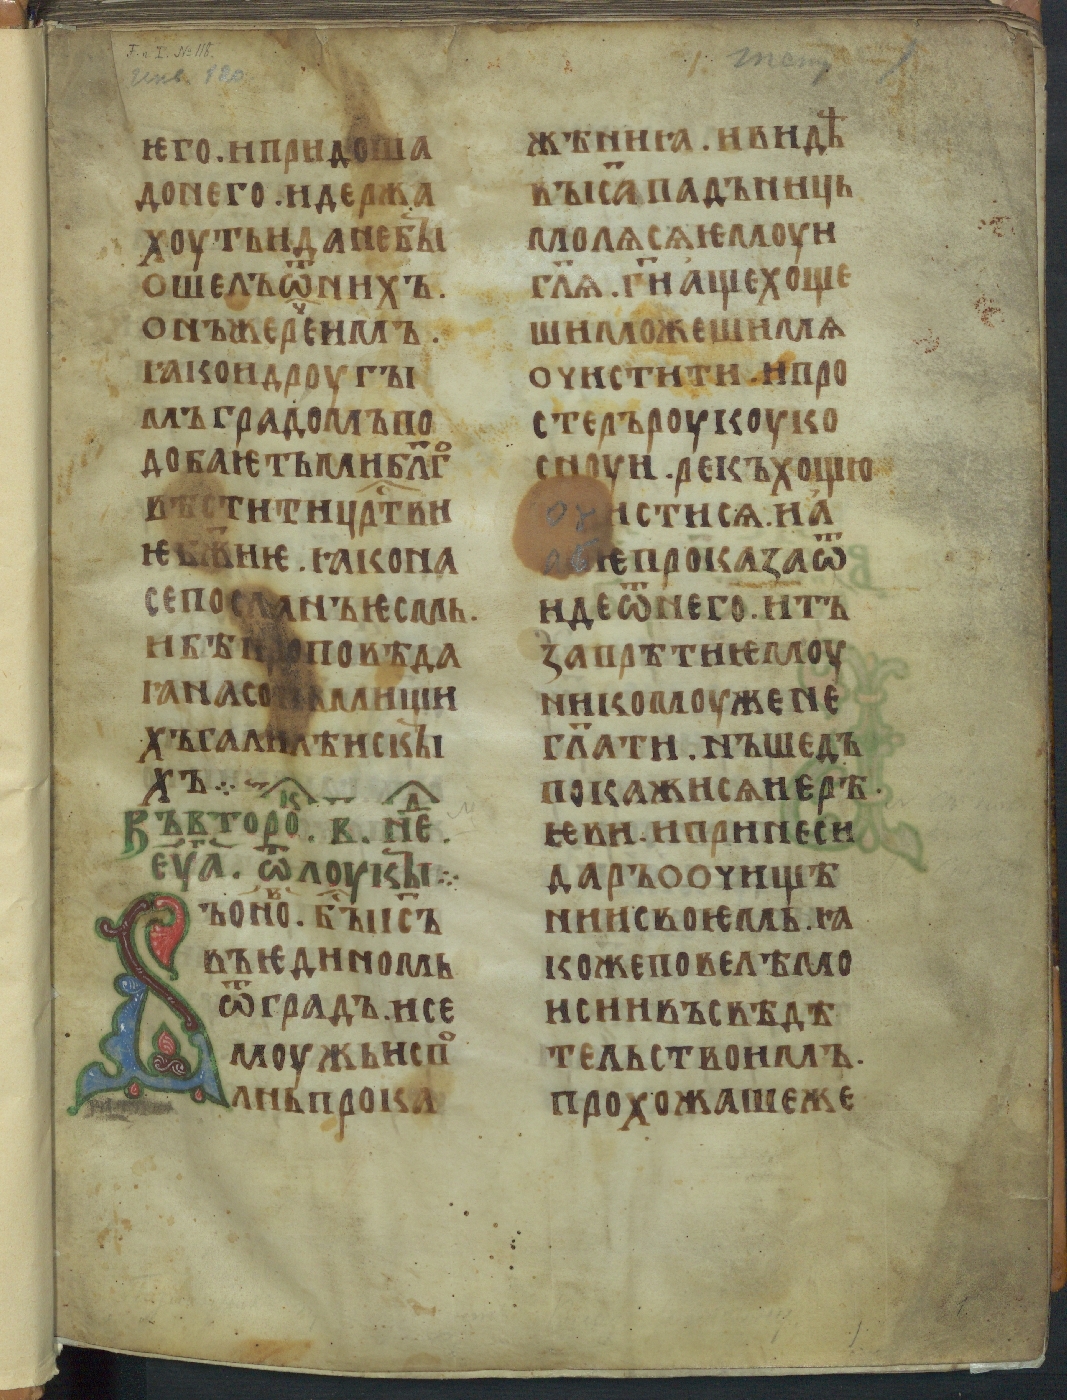 ѥго. и придоша
до него. и держа
хоуть и да не бꙑ
ошелъ ѿ нихъ.
онъ же реч̑е имъ.
ꙗко и дроугꙑ
мъ градомъ по
добаѥть ми блг̑о
вѣстити црⷭ҇тви
ѥ бж҃иѥ. ꙗко на
се посланъ ѥсмь.
и бѣ проповѣда
ꙗ на соньмищи
хъ галилѣискꙑ
хъ ⁘
Въ вторⷪ҇. к҃. нⷣе.
еу҃а. ѿ лоукꙑ ⁘
Въ онⷪ҇. б꙯ꙑ іс҃ъ
въ ѥдиномь
ѿ градъ. и се
моужь исполⷩ
лнь прока
жѣниꙗ. и видѣ
въ іс҃а падъ ниць
молѧсѧ ѥмоу и
гл҃ѧ. г҃и аще хоще
ши можеши мѧ
очистити. и про
стеръ роукоу ко
сноу и. рекъ хощю
очистисѧ. и а
биѥ проказа ѿ
иде ѿ него. и тъ
запрѣти ѥмоу
никомоу же не
гл҃ати. нъ шедъ
покажисѧ иерѣ.
ѥви. и принеси
даръ о очищѣ
нии своѥмь. ꙗ
коже повелѣ мо
иси въ свѣдѣ
тельство имъ.
прохожаше же